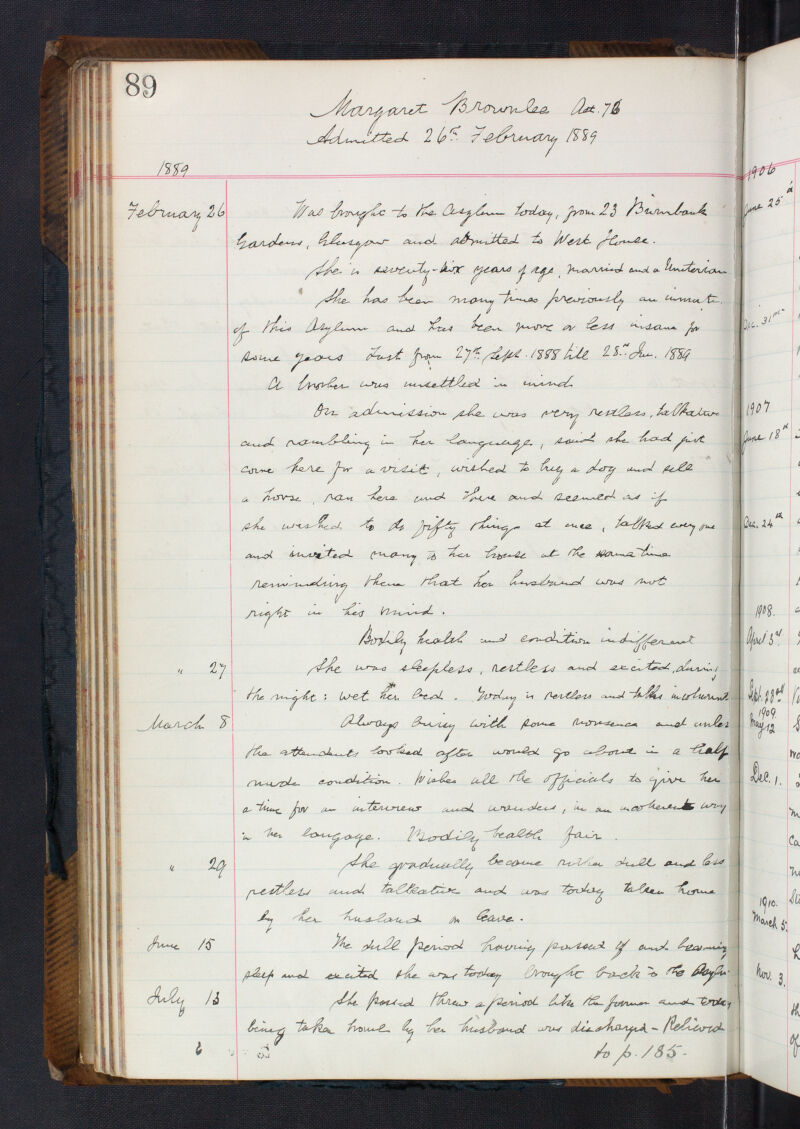 89
Margaret Brownlee Aet. 76
Admitted 26th February 1889
1889
February 26 Was brought to the Asylum today, from 23 Burnbank
Gardens, Glasgow and admitted to West House.
She is seventy-six years of age, married and a Unitarian
She has been many times previously an inmate
of this Asylum and has been more or less insane for
some years Last from 27th Sept. 1888 till 28th Jan. 1889
A brother was unsettled in mind.
On admission she was very restless, talkative
and rambling in her language, said she had just
come here for a visit, wished to buy a dog and sell
a horse, ran here and there and seemed as if
she wished to do fifty things at once, talked every one
and invited many to her house at the same time
reminding them that her husband was not
right in his mind.
Bodily health and condition indifferent
" 27 She was sleepless, restless and excited during
the night: wet her bed. Today is restless and talks incoherent
March 8 Always busy with some nonsence and unless
the attendants looked after would go about in a half
nude condition. Wishes all the officials to give her
a time for an interview and wanders, in an incoherent way
in her langage. Bodily health fair.
" 29 She gradually became rather dull and less
restless and talkative and was today taken home
by her husband on leave.
June 15 The dull period having passed off and becoming
sleep and excited she was today brought back to the Asylm
July 13 She passed threw a period like the former and today
being taken home by her husband was discharged - Relieved
to p. 185.
1906
June 25
Dec. 31
1907
June 18th
Dec. 24th
1908.
April 3rd
Sept. 28
1909
May 12
Dec. 1.
1910.
March 5.
Nov. 3.